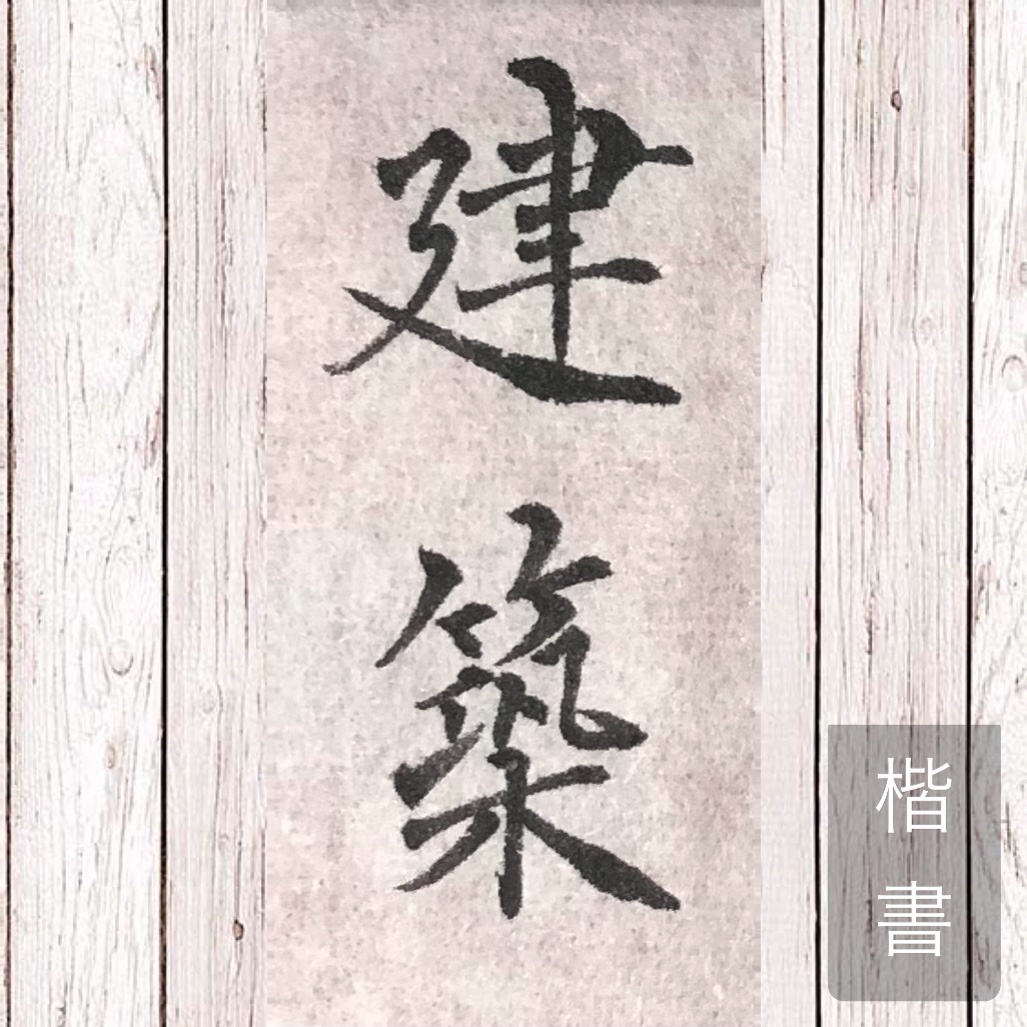 建築
楷書